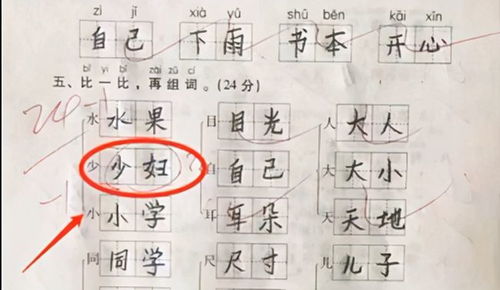 zì jǐ xià yǔ shū běn kāi xīn
自己 下雨 书本 开心
bǐ yi bǐ zài zǔ cí
五、比一比，再组词。(24分)
24-1
水 水果 目 目光 人 大人
少 少妇 自 自己 大 大小
-1
小 小学 耳 耳朵 天 天地
同 同学 尺 尺寸 儿 儿子